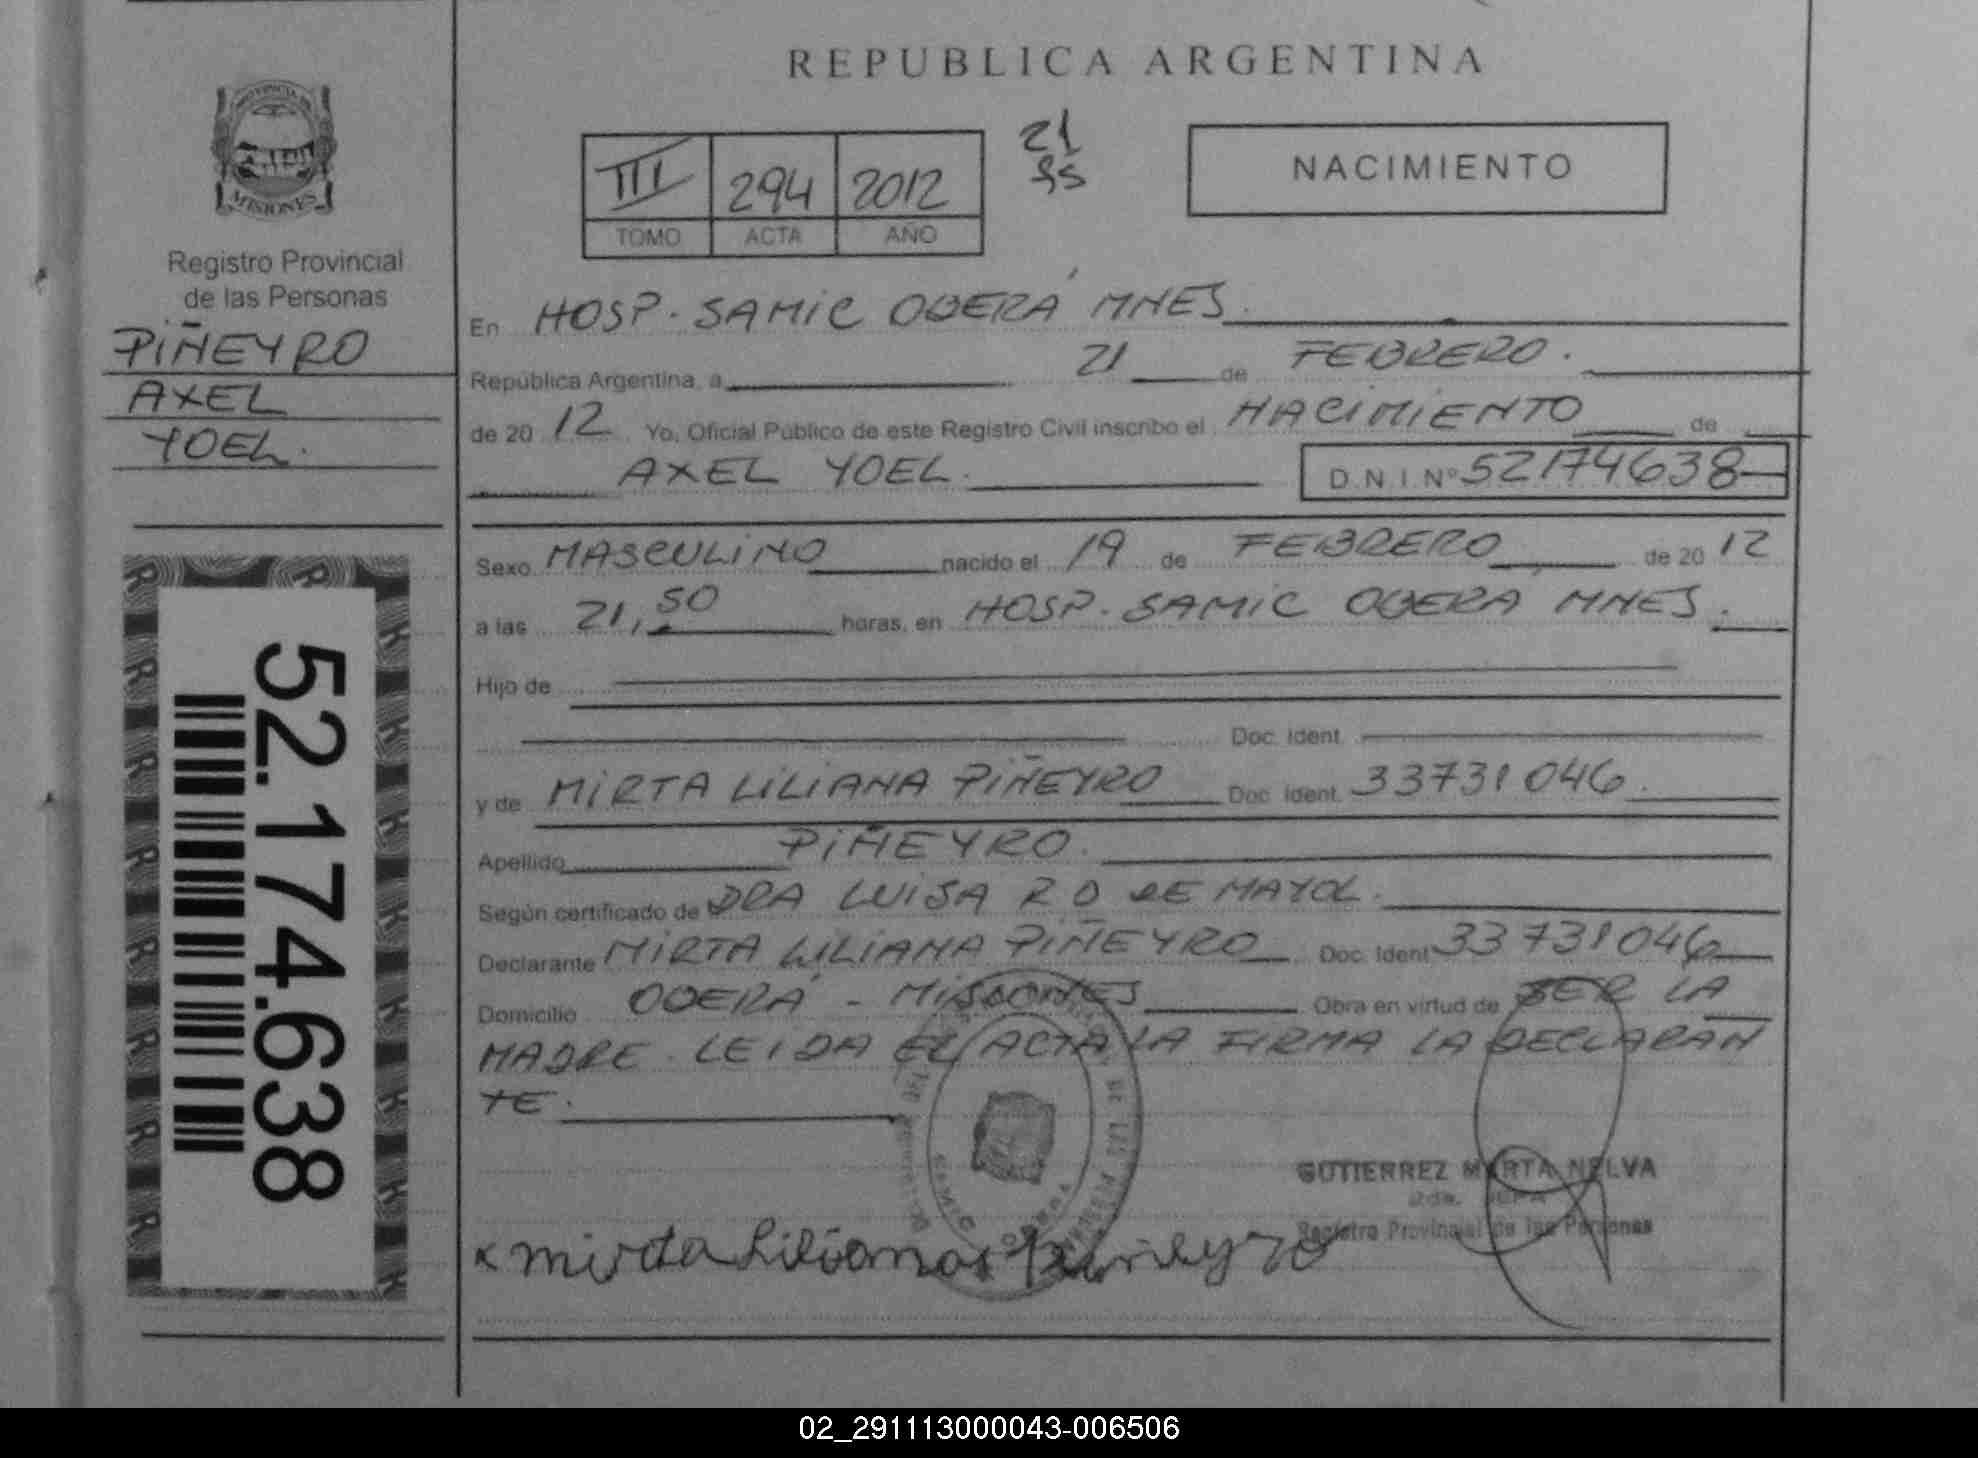 PROVINCIA DE
MISIONES
Registro Provincial
de las Personas
PIÑEYRO
AXEL
YOEL.
52.174.638
REPUBLICA ARGENTINA
III 294 2012
TOMO ACTA AÑO
21
NACIMIENTO
En HOSP. SAMIC OBERÁ MNES.
República Argentina, a 21 de FEBRERO.
de 20 12 Yo, Oficial Público de este Registro Civil inscribo el NACIMIENTO de
AXEL YOEL. D.N.I. Nº 52174638
Sexo MASCULINO nacido el 19 de FEBRERO de 20 12
a las 21,50 horas, en HOSP. SAMIC OBERA MNES.
Hijo de
Doc. Ident.
y de MIRTA LILIANA PIÑEYRO Doc. Ident. 33731046.
Apellido PIÑEYRO.
Según certificado de DRA LUISA R D DE MAYOL.
Declarante MIRTA LILIANA PIÑEYRO Doc. Ident 33731046
Domicilio OBERÁ - MISIONES Obra en virtud de SER LA
MADRE. LEIDA EL ACTA LA FIRMA LA DECLARAN
TE.
GUTIERREZ MIRTA NELVA
Registro Provincial de las Personas
x mirta Liliana Piñeyro
02_291113000043-006506